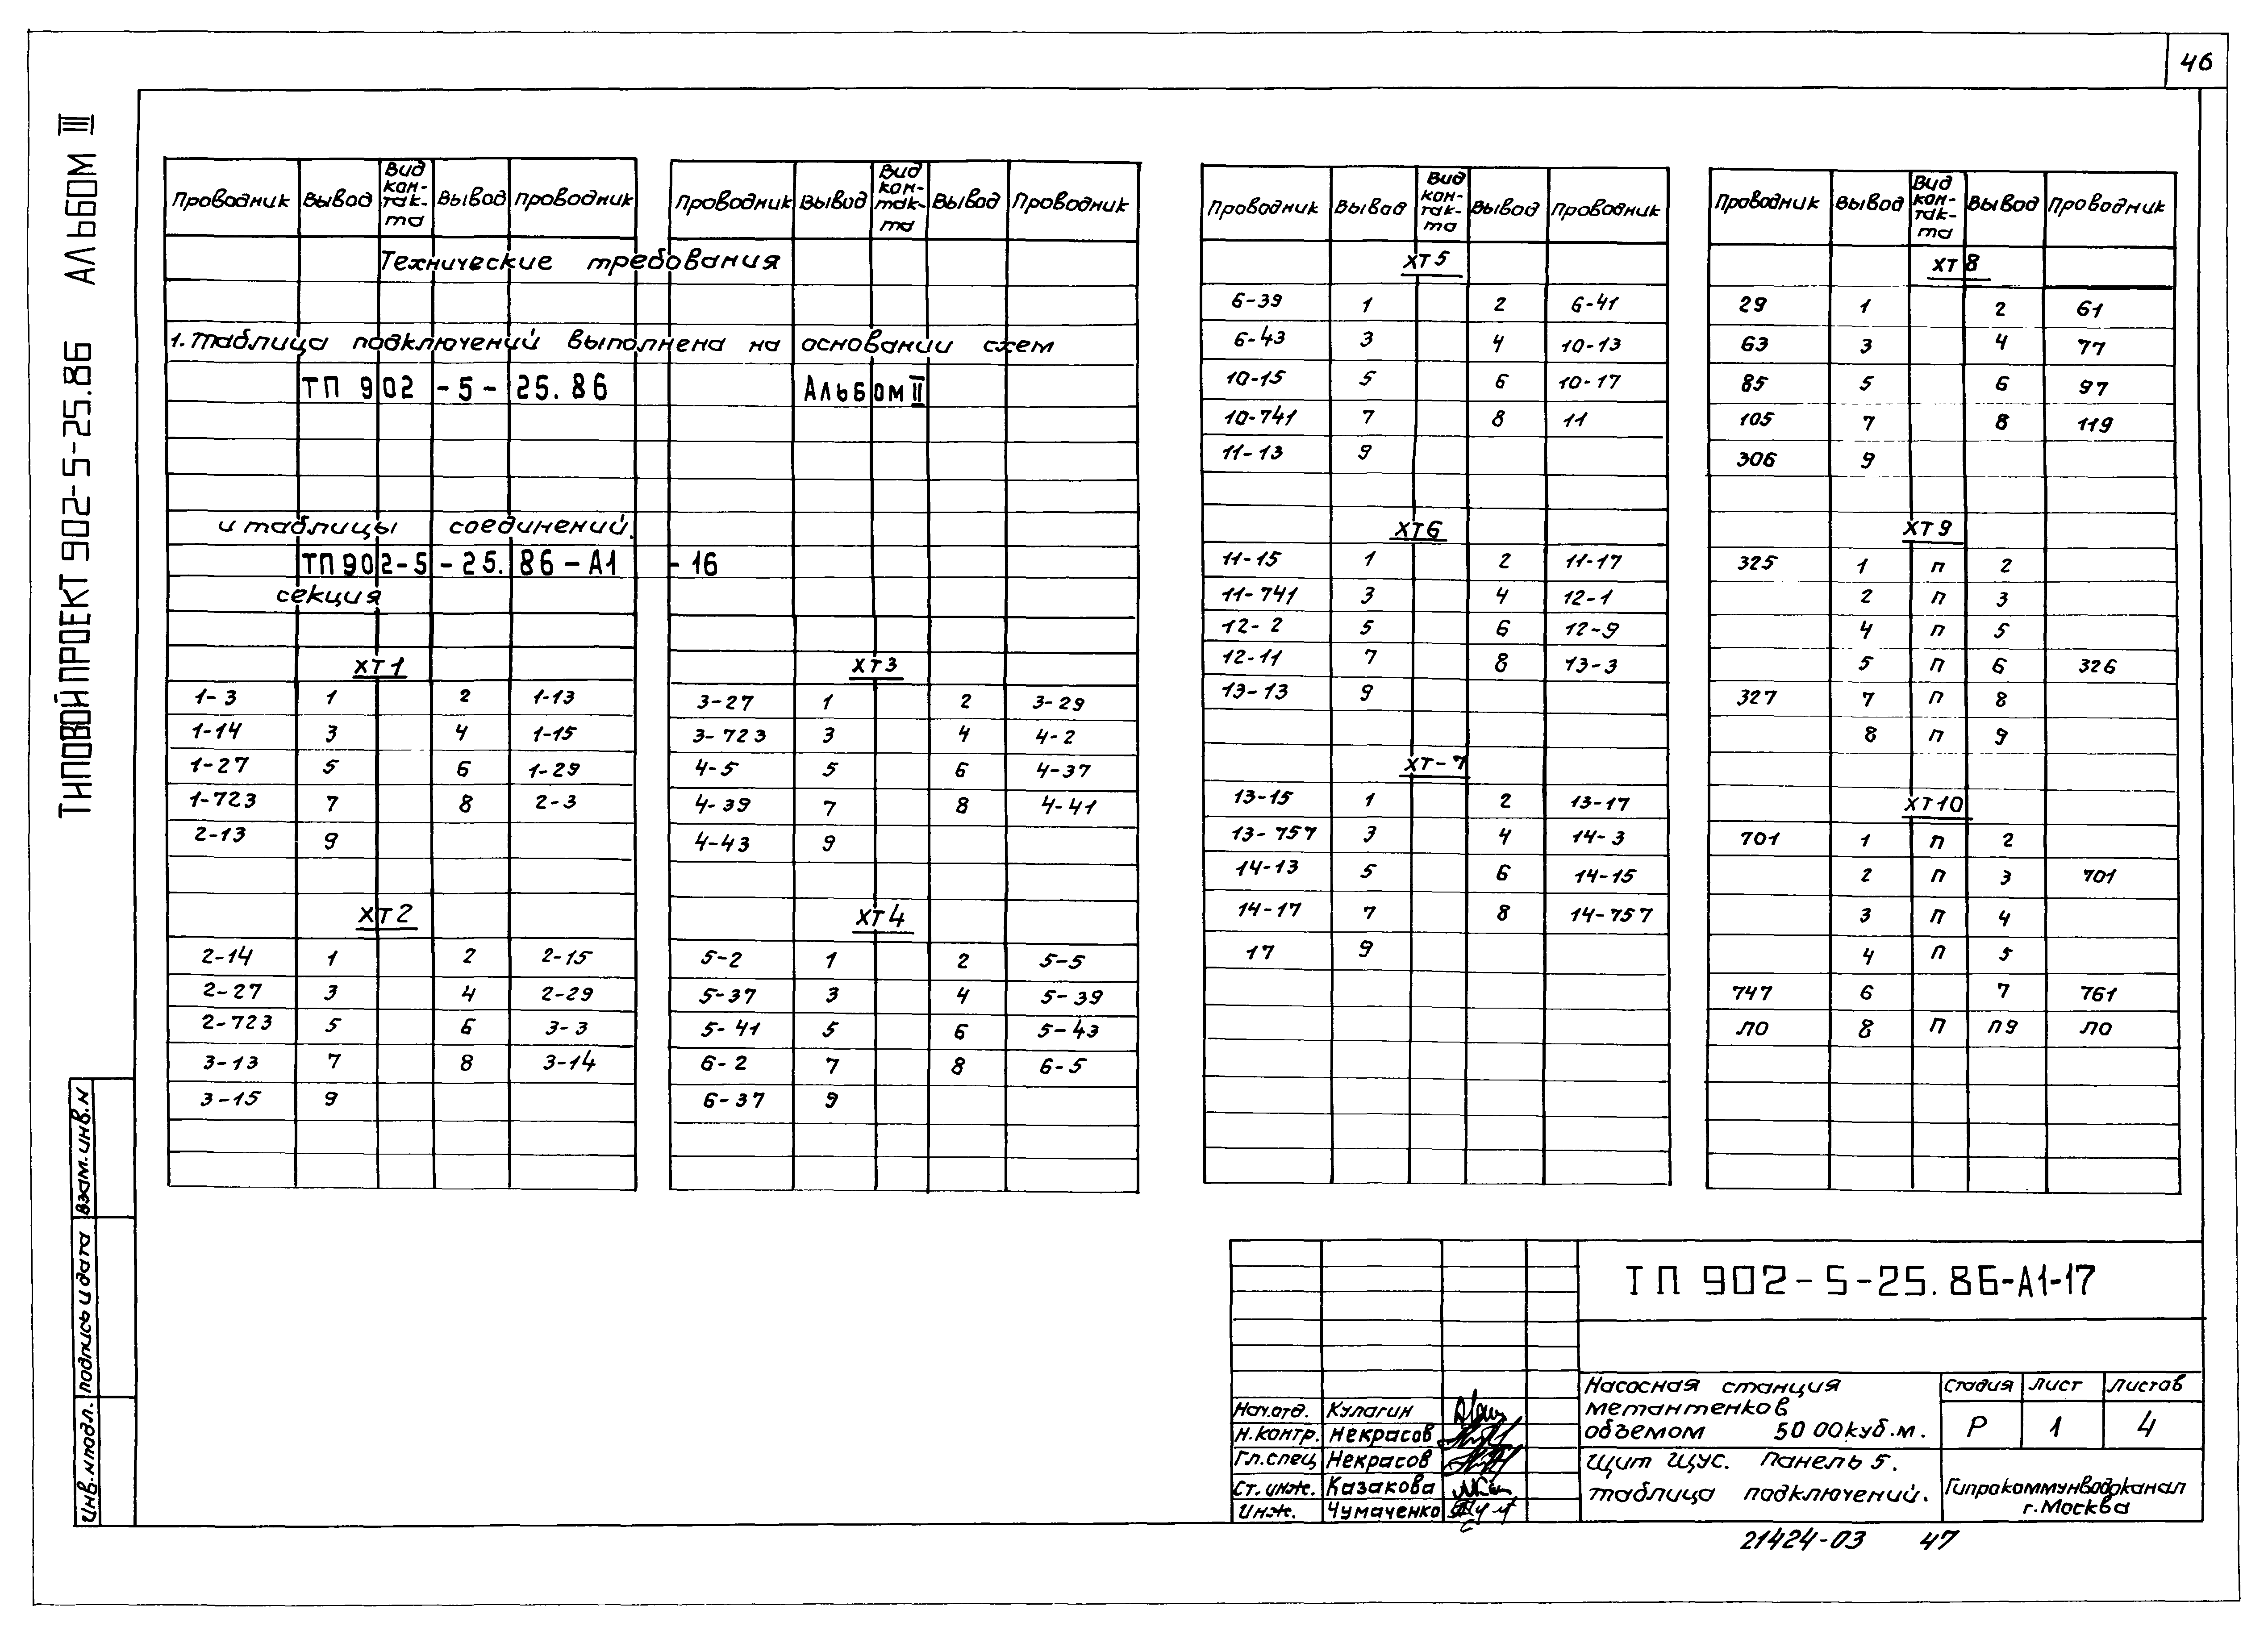 46
ТИПОВОЙ ПРОЕКТ 902-5-25.86 АЛЬБОМ III
Проводник Вывод Вид кон-так-та Вывод Проводник
Технические требования
1. Таблица подключений выполнена на основании схем
ТП 902-5-25.86 Альбом II
и таблицы соединений.
ТП 902-5-25.86-А1 -16
секция
ХТ1
1-3 1 2 1-13
1-14 3 4 1-15
1-27 5 6 1-29
1-723 7 8 2-3
2-13 9
ХТ2
2-14 1 2 2-15
2-27 3 4 2-29
2-723 5 6 3-3
3-13 7 8 3-14
3-15 9
Проводник Вывод Вид кон-так-та Вывод Проводник
ХТ3
3-27 1 2 3-29
3-723 3 4 4-2
4-5 5 6 4-37
4-39 7 8 4-41
4-43 9
ХТ4
5-2 1 2 5-5
5-37 3 4 5-39
5-41 5 6 5-43
6-2 7 8 6-5
6-37 9
Проводник Вывод Вид кон-так-та Вывод Проводник
ХТ5
6-39 1 2 6-41
6-43 3 4 10-13
10-15 5 6 10-17
10-741 7 8 11
11-13 9
ХТ6
11-15 1 2 11-17
11-741 3 4 12-1
12-2 5 6 12-9
12-11 7 8 13-3
13-13 9
ХТ-7
13-15 1 2 13-17
13-757 3 4 14-3
14-13 5 6 14-15
14-17 7 8 14-757
17 9
Проводник Вывод Вид кон-так-та Вывод Проводник
ХТ8
29 1 2 61
63 3 4 77
85 5 6 97
105 7 8 119
306 9
ХТ9
325 1 п 2
2 п 3
4 п 5
5 п 6 326
327 7 п 8
8 п 9
ХТ10
701 1 п 2
2 п 3 701
3 п 4
4 п 5
747 6 7 761
ЛО 8 п п9 ЛО
Взам.инв.N
Подпись и дата
Инв.Nподл.
ТП 902-5-25.86-А1-17
Нач.отд. Кулагин
Н.контр. Некрасов
Гл.спец Некрасов
Ст.инж. Казакова
Инж. Чумаченко
Насосная станция
метантенков
объемом 5000куб.м.
Щит ЩУС. Панель 5.
Таблица подключений.
Стадия Лист Листов
Р 1 4
Гипрокоммунводоканал
г.Москва
21424-03 47